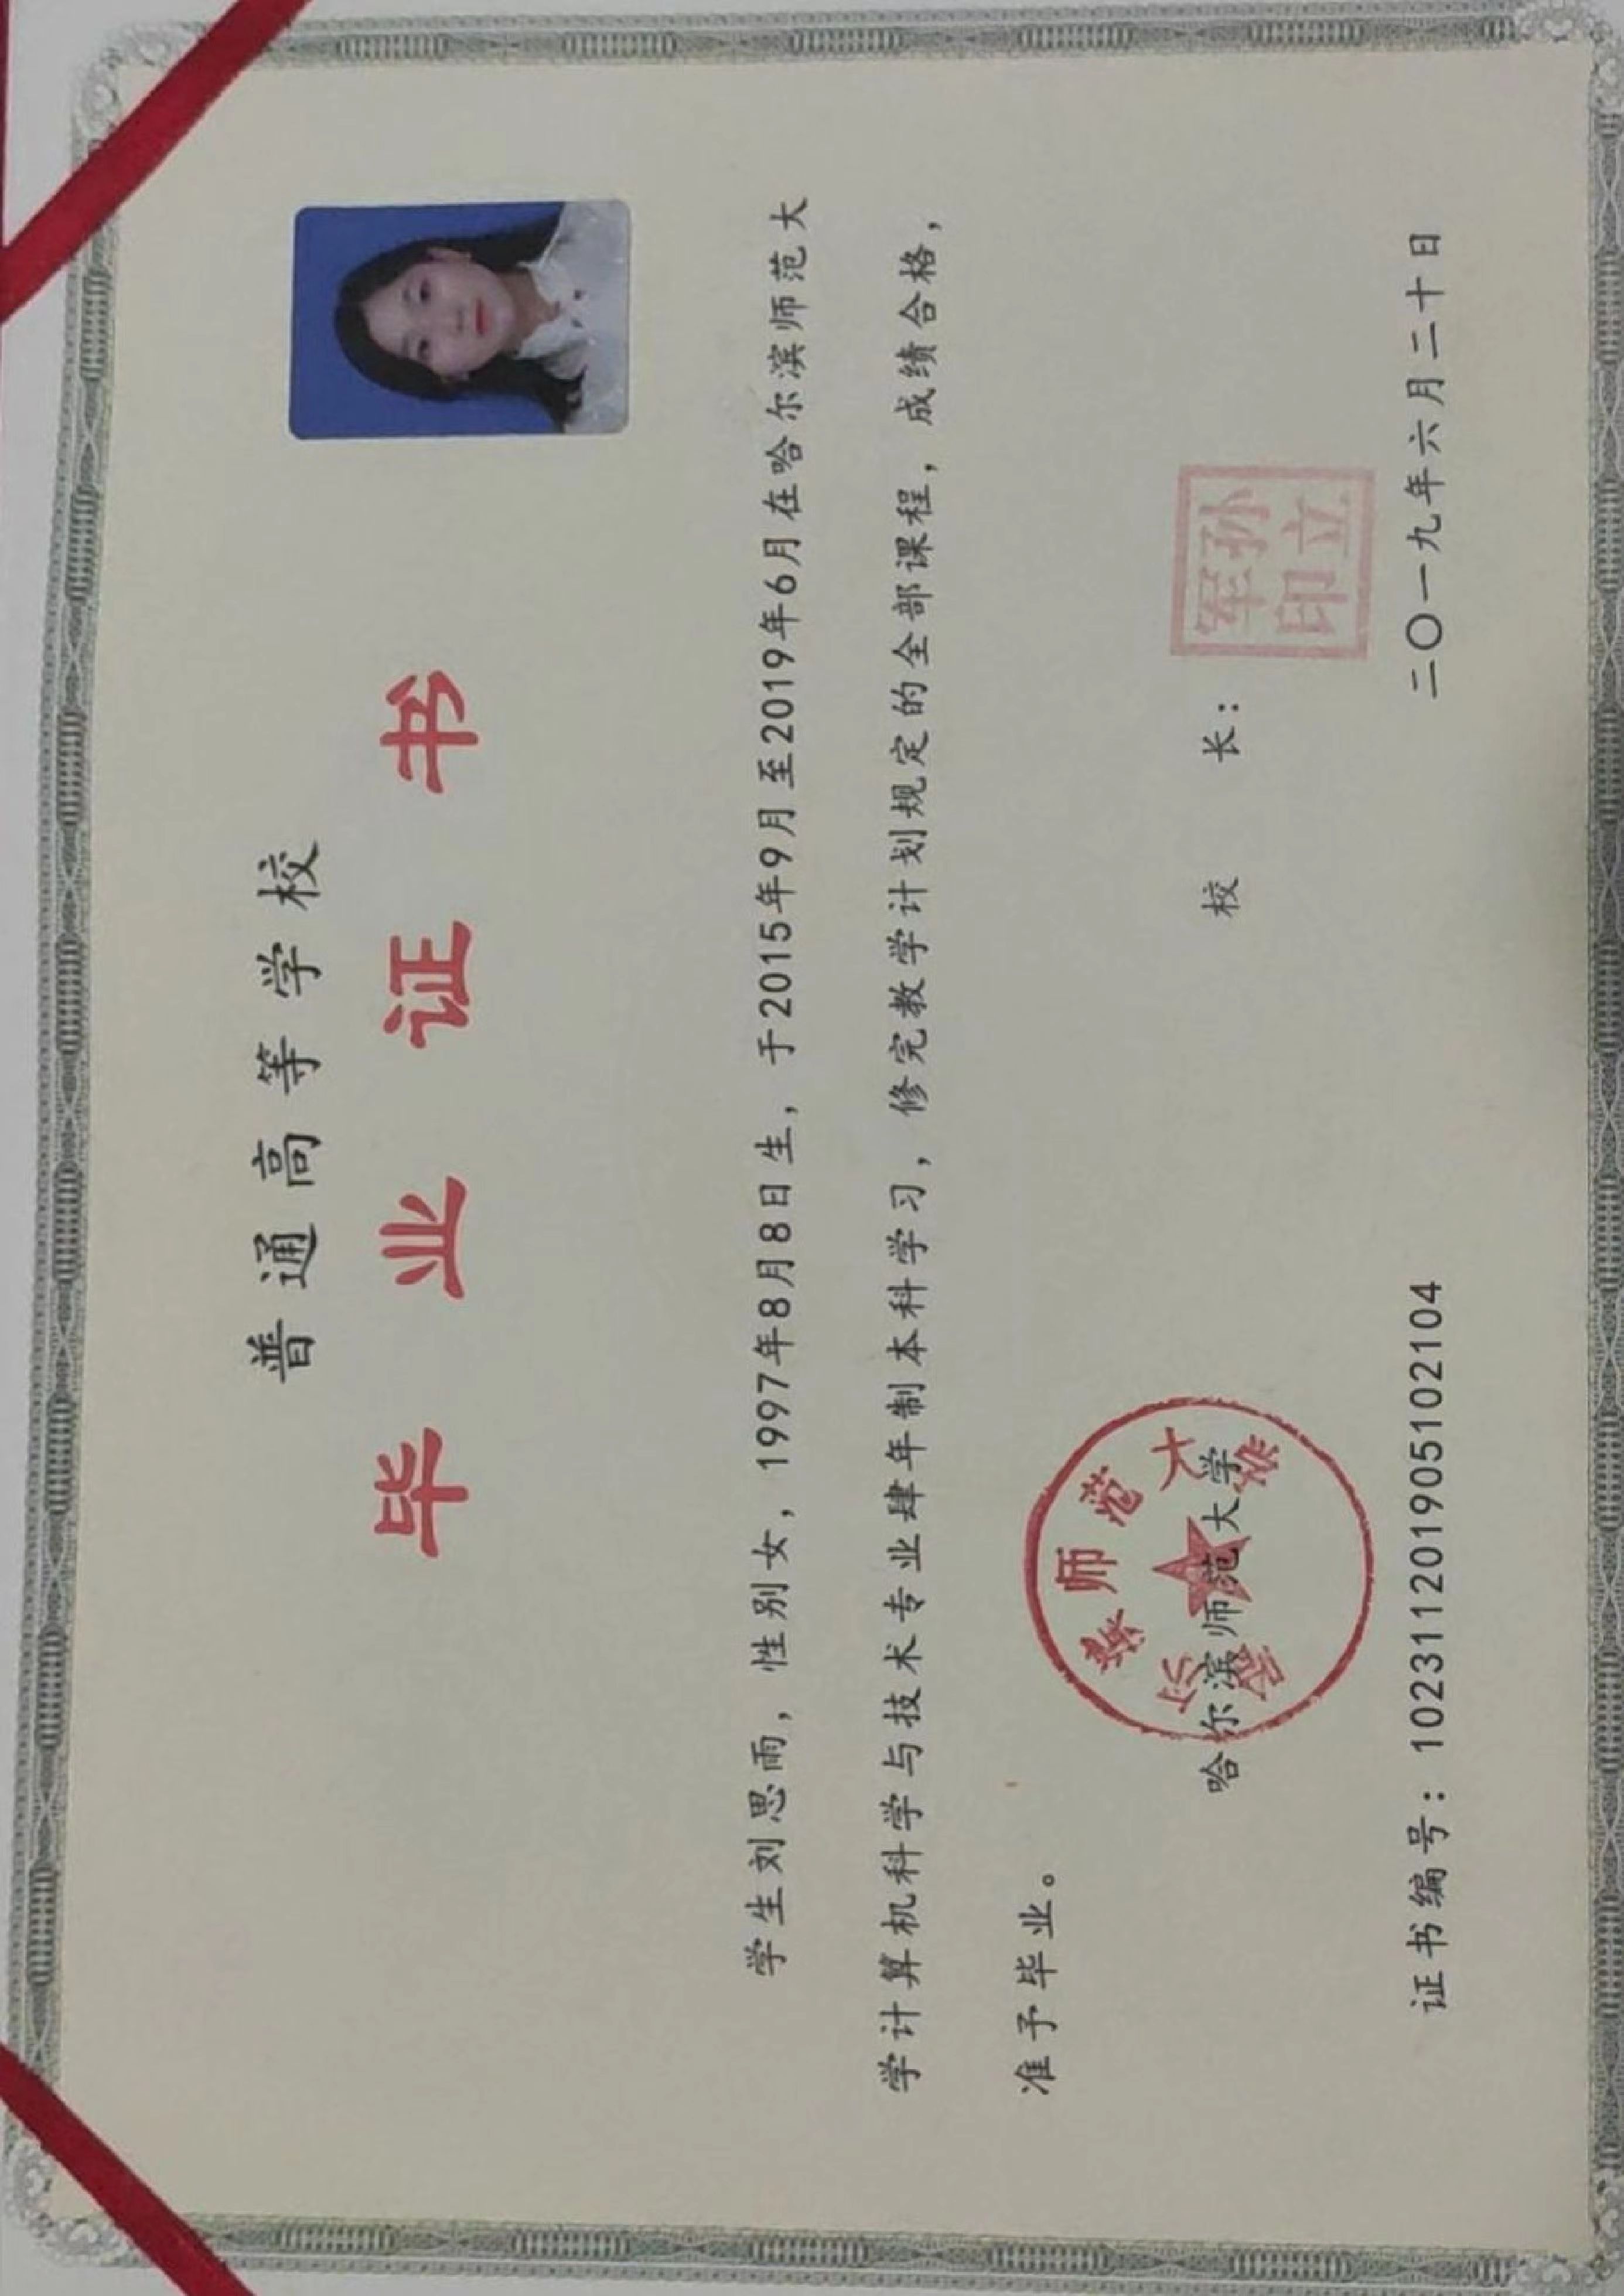 普通高等学校
毕业证书
学生刘思雨，性别女，1997年8月8日生，于2015年9月至2019年6月在哈尔滨师范大
学计算机科学与技术专业肆年制本科学习，修完教学计划规定的全部课程，成绩合格，
准予毕业。
哈尔滨师范大学
哈尔滨师范大学
校 长：
孙立军印
证书编号：102311201905102104
二〇一九年六月二十日